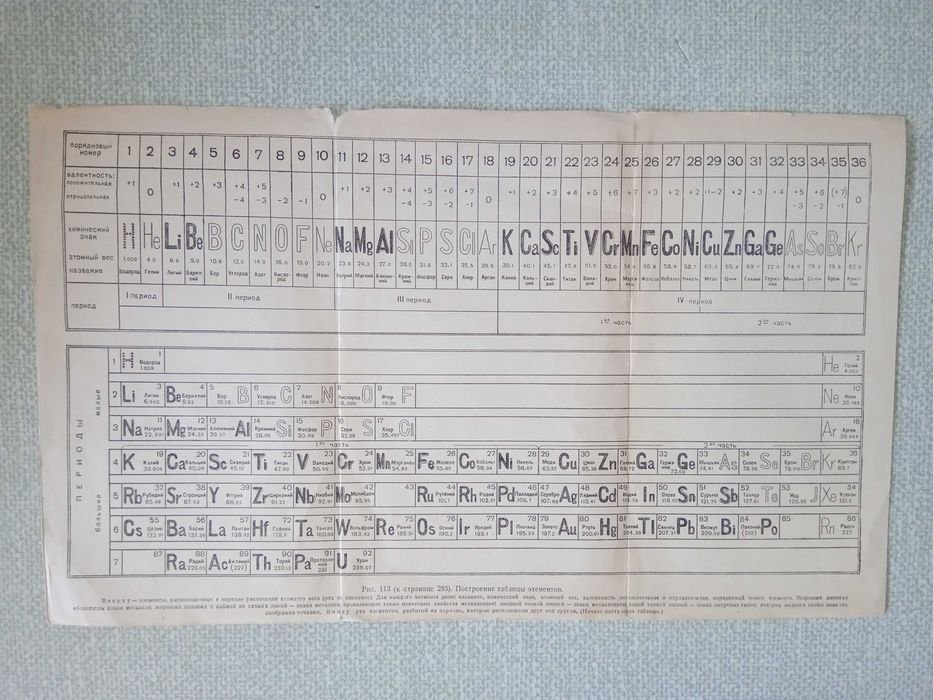 порядковый номер 1 2 3 4 5 6 7 8 9 10 11 12 13 14 15 16 17 18 19 20 21 22 23 24 25 26 27 28 29 30 31 32 33 34 35 36
валентность:
положительная +1 0 +1 +2 +3 +4 +5 +1 +2 +3 +4 +5 +6 +7 +1 +2 +3 +4 +5 +6 +7 +3 +2 +2 +1-+2 +2 +3 +4 +5 +6 (+7)
отрицательная −4 −3 −2 −1 0 −4 −3 −2 −1 0 −3 −2 −1 0
химический знак H He Li Be B C N O F Ne Na Mg Al Si P S Cl Ar K Ca Sc Ti V Cr Mn Fe Co Ni Cu Zn Ga Ge As Se Br Kr
атомный вес 1,008 4.0 6.9 9.0 10.8 12.0 14.0 16.0 19.0 20.2 23.0 24.3 27.0 28.0 31.0 32.0 35.5 39.9 39.1 40.1 45.1 47.9 51.0 52.0 54.9 55.8 58.9 58.7 63.6 65.4 69.7 72.6 74.9 79.0 79.9 82.9
название Водород Гелий Литий Бериллий Бор Углерод Азот Кислород Фтор Неон Натрий Магний Алюминий Кремний Фосфор Сера Хлор Аргон Калий Кальций Скандий Титан Ванадий Хром Марганец Железо Кобальт Никель Медь Цинк Галлий Германий Мышьяк Селен Бром Криптон
период I период II период III период IV период
1ая часть 2ая часть
ПЕРИОДЫ
малые
большие
1 H 1 Водород 1.008 He 2 Гелий 4.003
2 Li 3 Литий 6,940 Be 4 Бериллий 9.02 5 Бор B 6 Углерод 12,010 C 7 Азот 14,008 N 8 Кислород O 9 Фтор 19,00 F Ne 10 Неон 20.183
3 Na 11 Натрий 22,997 Mg 12 Магний 24,32 13 Алюминий 26.97 Al 14 Кремний 28,06 Si 15 Фосфор 30,98 P 16 Сера 32,06 S 17 Хлор 35,457 Cl Ar 18 Аргон 39.944
1ая часть 2ая часть
4 K 19 Калий Ca 20 Кальций 40,08 Sc 21 Скандий 45.10 Ti 22 Титан 47.90 V 23 Ванадий 50.95 Cr 24 Хром 52.01 Mn 25 Марганец 54.93 Fe 26 Железо 55.85 Co 27 Кобальт 58.94 Ni 28 Никель 58.69 29 Медь 63.57 Cu 30 Цинк 65.38 Zn 31 Галлий 69.72 Ga 32 Германий 72.60 Ge 33 Мышьяк 74,91 As 34 Селен 78.96 Se 35 Бром Br Kr 36 Криптон 83.7
5 Rb 37 Рубидий 85.48 Sr 38 Стронций 87.63 Y 39 Иттрий 88.92 Zr 40 Цирконий 91.22 Nb 41 Ниобий 92.91 Mo 42 Молибден 95.95 43 Ru 44 Рутений 101.7 Rh 45 Родий 102.91 Pd 46 Палладий 106.7 47 Серебро 107.88 Ag 48 Кадмий 112.41 Cd 49 Индий In 50 Олово Sn 51 Сурьма 121.76 Sb 52 Теллур 127.61 Te 53 Иод J Xe 54 Ксенон 131.3
6 Cs 55 Цезий 132.91 Ba 56 Барий 137.36 La 57 Лантан 138.92 Hf 72 Гафний 178.6 Ta 73 Тантал 180.88 W 74 Вольфрам 183.92 Re 75 Рений 186.31 Os 76 Осмий 190.2 Ir 77 Иридий 193.1 Pl 78 Платина 195.23 79 Золото 197.2 Au 80 Ртуть 200.61 Hg 81 Таллий 204.39 Tl 82 Свинец 207.21 Pb 83 Висмут 209.00 Bi 84 Полоний (210) Po 85 Rn 86 Радон 222
7 87 Ra 88 Радий 226.05 Ac 89 Актиний (227) Th 90 Торий 232.12 Pa 91 Протактиний 231 U 92 Уран 238.07
Рис. 113 (к странице 283). Построение таблицы элементов.
Вверху — элементы, расположенные в порядке увеличения атомного веса (ряд элементов). Для каждого элемента даны: название, химический знак, атомный вес, валентность положительная и отрицательная, порядковый номер элемента. Жирными линиями
обозначены знаки металлов; жирными линиями с каймой из тонкой линии — знаки металлов, проявляющих также некоторые свойства металлоидов; двойной тонкой линией — знаки металлоидов; одной тонкой линией — знаки инертных газов;
изображен точками. Внизу ряд элементов, разбитый на отрезки, которые расположены друг под другом. (Начало построения таблицы.)